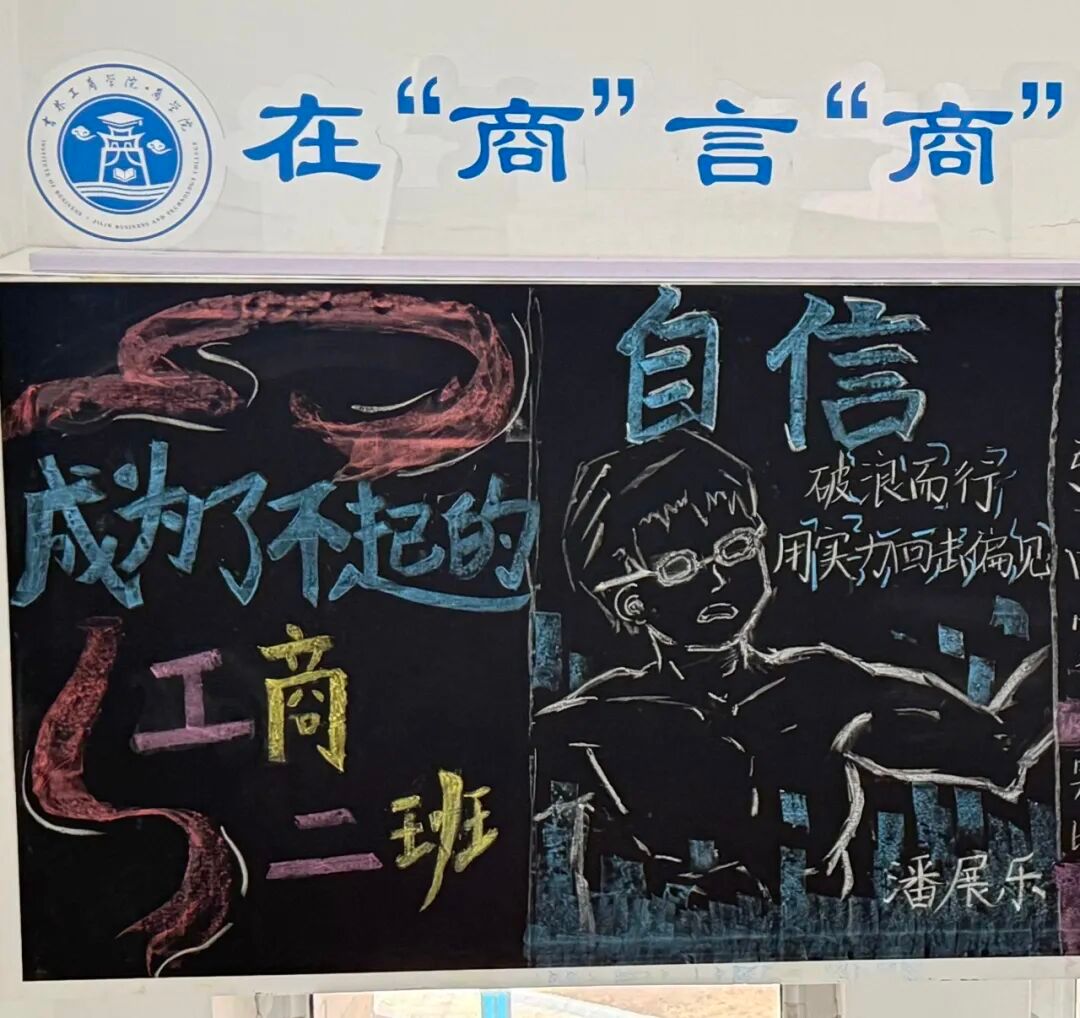 吉林工商学院·商学院
INSTITUTE OF BUSINESS · JILIN BUSINESS AND TECHNOLOGY COLLEGE
在“商”言“商”
成为了不起的
工商
二班
自信
破浪而行
用实力回击偏见
潘展乐